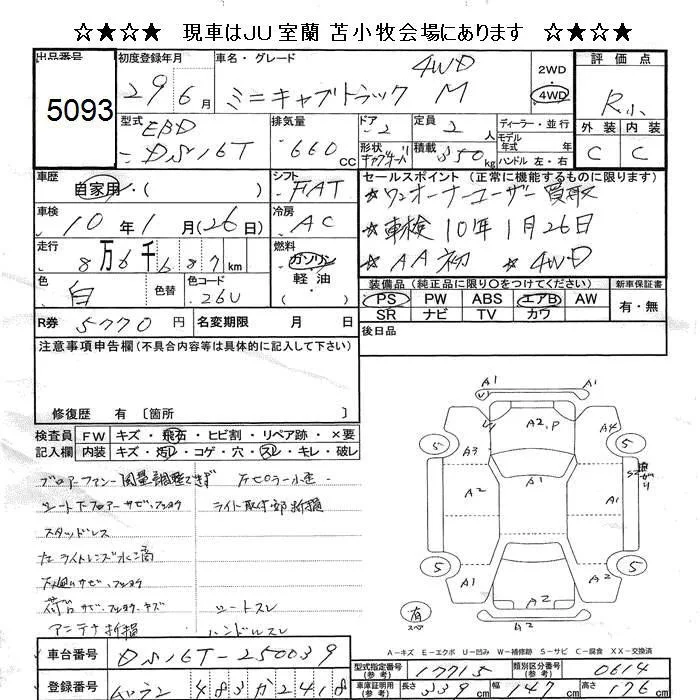 ☆★☆★ 現車はJU室蘭 苫小牧会場にあります ☆★☆★
出品番号 初度登録年月 車名・グレード 評価点
5093
29 6月
ミニキャブトラック M 4WD
2WD・4WD
R小
外装 内装
C C
型式 EBD-DS16T
排気量 660cc
ドア 2
定員 2人
形状 積載 350kg
ディーラー・並行
モデル年式 年
ハンドル 左・右
車歴 自家用・( )
シフト FAT
車検 10年1月(26日)
冷房 AC
走行 8万6千687km
燃料 ガソリン・軽油・
色 白 色替
色コード 26U
R券 5770円 名変期限 月 日
セールスポイント (正常に機能するものに限ります)
★ワンオーナーユーザー買取
★車検10年1月26日
★AA初 ★4WD
装備品(純正品に限り○をつけてください) 新車保証書
PS PW ABS エアB AW 有・無
SR ナビ TV カワ
後日品
注意事項申告欄(不具合内容等は具体的に記入して下さい)
修復歴 有〔箇所 〕
検査員 FW キズ・飛石・ヒビ割・リペア跡・×要
記入欄 内装 キズ・汚レ・コゲ・穴・スレ・キレ・破レ
ブロアーファン風量調整できず
シート下フロアーサビ・フショク ライト取付部折損
スタッドレス
左ライトレンズ水滴
荷台サビ・フショク・キズ シートスレ
アンテナ折損 ハンドルスレ
A1 A1
A2,P
A3 A4
5 5
A1
A2 A1
5 5
A2 A2
A2
A2
有
A-キズ E-エクボ U-凹み W-補修跡 S-サビ C-腐食 XX-交換済
車台番号 DS16T-250039
型式指定番号(参考) 17715 類別区分番号(参考) 0614
登録番号 483か2418
車庫証明用(参考) 長さ 339cm 幅 147cm 高さ 176cm